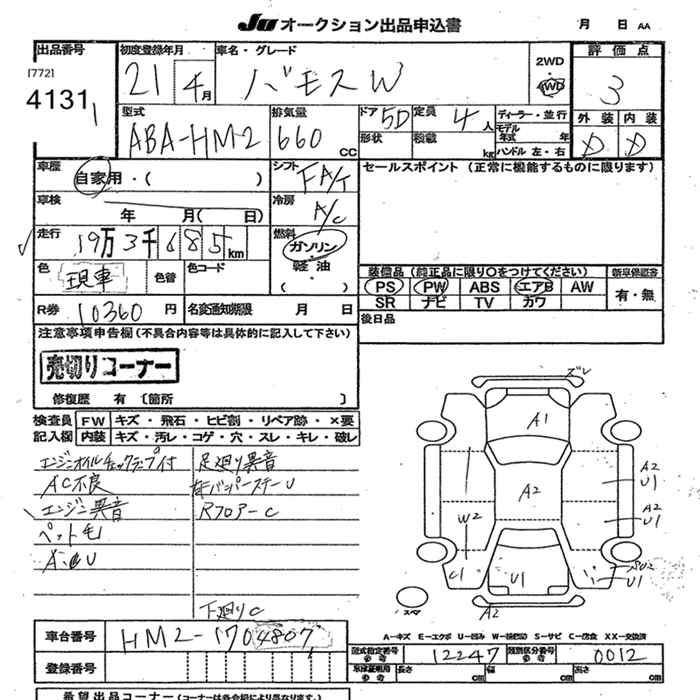 JU オークション出品申込書 月 日 AA
出品番号 初度登録年月 車名・グレード 2WD 評価点
[772]
4131 21 4月 バモスW 4WD 3
型式 排気量 ドア 5D 定員 4人 ディーラー・並行 外装 内装
ABA-HM2 660 CC 形状 積載 kg モデル年式 年 D D
ハンドル 左・右
車歴 自家用・( ) シフト FA/T セールスポイント (正常に機能するものに限ります)
車検 年 月( 日) 冷房 A/C
走行 19万3千685km 燃料 ガソリン・軽油・( )
色 現車 色替 色コード 装備品(純正品に限り○をつけてください) 新車保証書
PS PW ABS エアB AW 有・無
R券 10360円 名変通知期限 月 日 SR ナビ TV カワ
注意事項申告欄(不具合内容等は具体的に記入して下さい) 後日品
売切りコーナー
修復歴 有 〔箇所 〕 ズレ
検査員 FW キズ・飛石・ヒビ割・リペア跡・×要
記入欄 内装 キズ・汚レ・コゲ・穴・スレ・キレ・破レ
A1
エンジンオイルチェックランプ付 足廻り異音
AC不良 バンパーステーU
エンジン異音 RフロアーC
ペット毛
A2
A2
U1
W2
A2
U1
C1 U1 U1
下廻りC
スペア A2
車台番号 HM2-1704807 A-キズ E-エクボ U-凹み W-補修跡 S-サビ C-腐食 XX-交換済
型式指定番号 参考 12247 類別区分番号 参考 0012
登録番号 長さ cm 幅 cm 高さ cm
希望出品コーナー